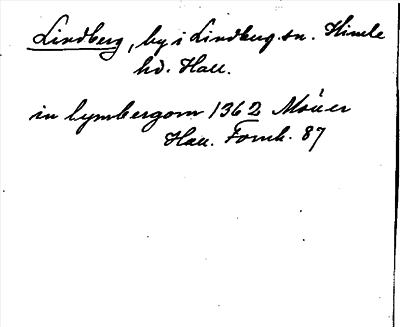 Lindberg, by i Lindberg sn. Himle
hd. Hall.
in lymbergom 1362 Möller
Hall. Fornh. 87